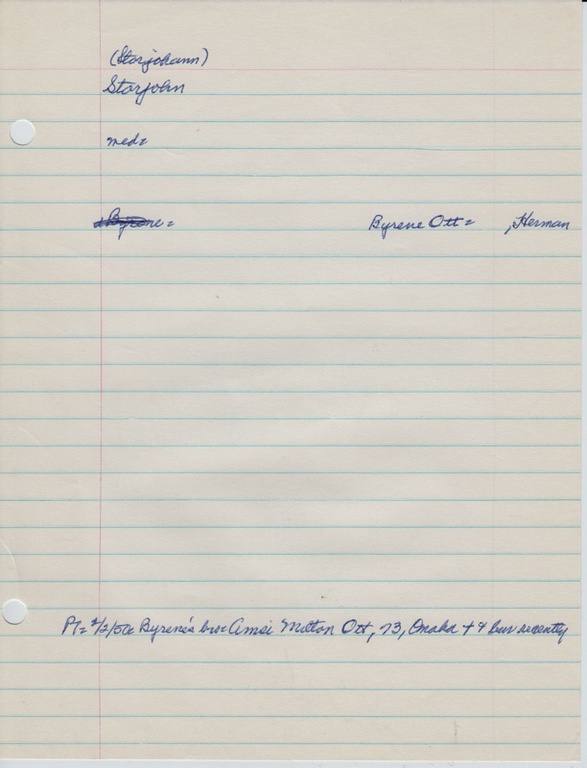 (Storjohann)
Storjohn
med=
Byrene= Byrene Ott= , Herman
PT= 2/2/50: Byrene's bro: Amsi Milton Ott, 73, Omaha + & bur recently